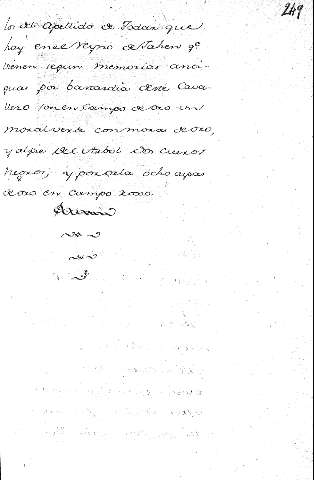 249
los del Apellido de Todar que
hay en el Reyno de Jahen qe
vienen segun memorias anti-
guas por bastardia deste Cava-
llero son en Campo de oro un
moral verde con moras de oro,
y al pie del Arbol dos Cuervos
negros, y por orla ocho aspas
de oro en campo roxo.